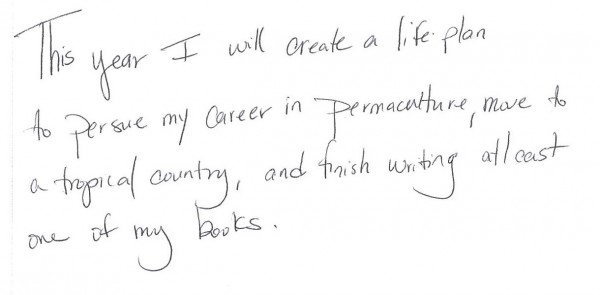 This year I will create a life plan
to persue my career in permaculture, move to
a tropical country, and finish writing atleast
one of my books.